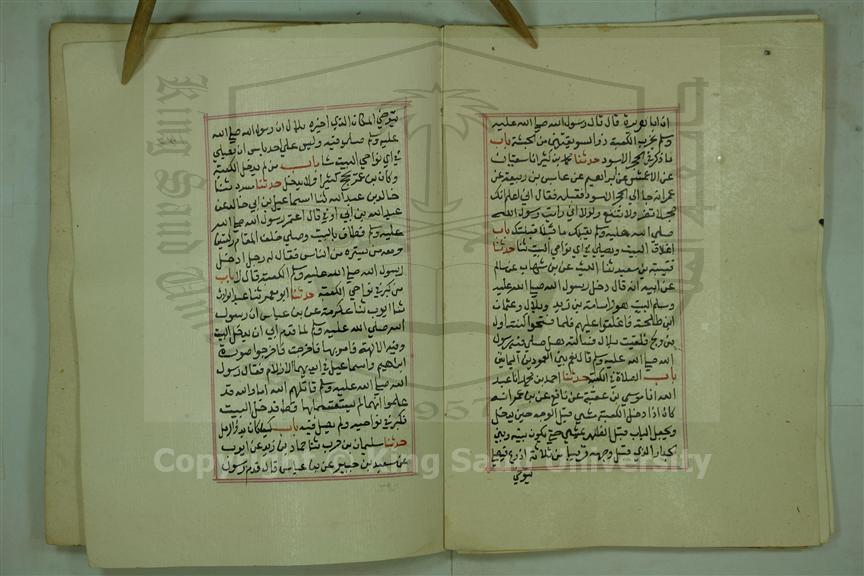 ان ابا هريرة قال قال رسول الله صلى الله عليه
وسلم يخرب الكعبة ذو السويقتين من الحبشة باب
ما ذكر في الحجر الاسود حدثنا محمد بن كثير انا سفيان
عن الاعمش عن ابراهيم عن عابس بن ربيعة عن
عمر انه جا الى الحجر الاسود فقبله فقال اني اعلم انك
حجر لا تضر ولا تنفع ولولا اني رايت رسول الله
صلى الله عليه وسلم يقبلك ما قبلتك باب
اغلاق البيت ويصلي في اي نواحي البيت شا حدثنا
قتيبة بن سعيد ثنا الليث عن بن شهاب عن سالم
عن ابيه انه قال دخل رسول الله صلى الله عليه
وسلم البيت هو واسامة بن زيد وبلال وعثمان
ابن طلحة فاغلقوا عليهم فلما فتحوا كنت اول
من ولج فلقيت بلال فسالته هل صلى فيه رسول
الله صلى الله عليه وسلم قال نعم بين العمودين اليمانيين
باب الصلاة في الكعبة حدثنا احمد بن محمد انا عبد
الله انا موسى بن عقبة عن نافع عن بن عمر انه
كان اذا دخل الكعبة مشى قبل الوجه حين يدخل
ويجعل الباب قبل الظهر يمشي حتى يكون بينه وبين
الجدار الذي قبل وجهه قريبا من ثلاثة اذرع فيصلي
يتوخى
يتوخى المكان الذي اخبره بلال ان رسول الله صلى الله
عليه وسلم صلى فيه وليس على احد باس ان يصلي
في اي نواحي البيت شا باب من لم يدخل الكعبة
وكان بن عمر يحج كثيرا ولا يدخل حدثنا مسدد ثنا
خالد بن عبد الله ثنا اسماعيل بن ابي خالد عن
عبد الله بن ابي اوفى قال اعتمر رسول الله صلى الله
عليه وسلم فطاف بالبيت وصلى خلف المقام ركعتين
ومعه من يستره من الناس فقال له رجل ادخل
رسول الله صلى الله عليه وسلم الكعبة قال لا باب
من كبر في نواحي الكعبة حدثنا ابو معمر ثنا عبد الوارث
ثنا ايوب ثنا عكرمة عن بن عباس ان رسول
الله صلى الله عليه وسلم لما قدم ابى ان يدخل البيت
وفيه الالهة فامر بها فاخرجت فاخرجوا صورة
ابراهيم واسماعيل في ايديهما الازلام فقال رسول
الله صلى الله عليه وسلم قاتلهم الله اما والله قد
علموا انهما لم يستقسما بها قط فدخل البيت
فكبر في نواحيه ولم يصل فيه باب كيف كان بدؤ الرمل
حدثنا سليمان بن حرب ثنا حماد بن زيد عن ايوب
عن سعيد بن جبير عن بن عباس قال قدم رسول
King Saud University
1957
Copyright © King Saud University